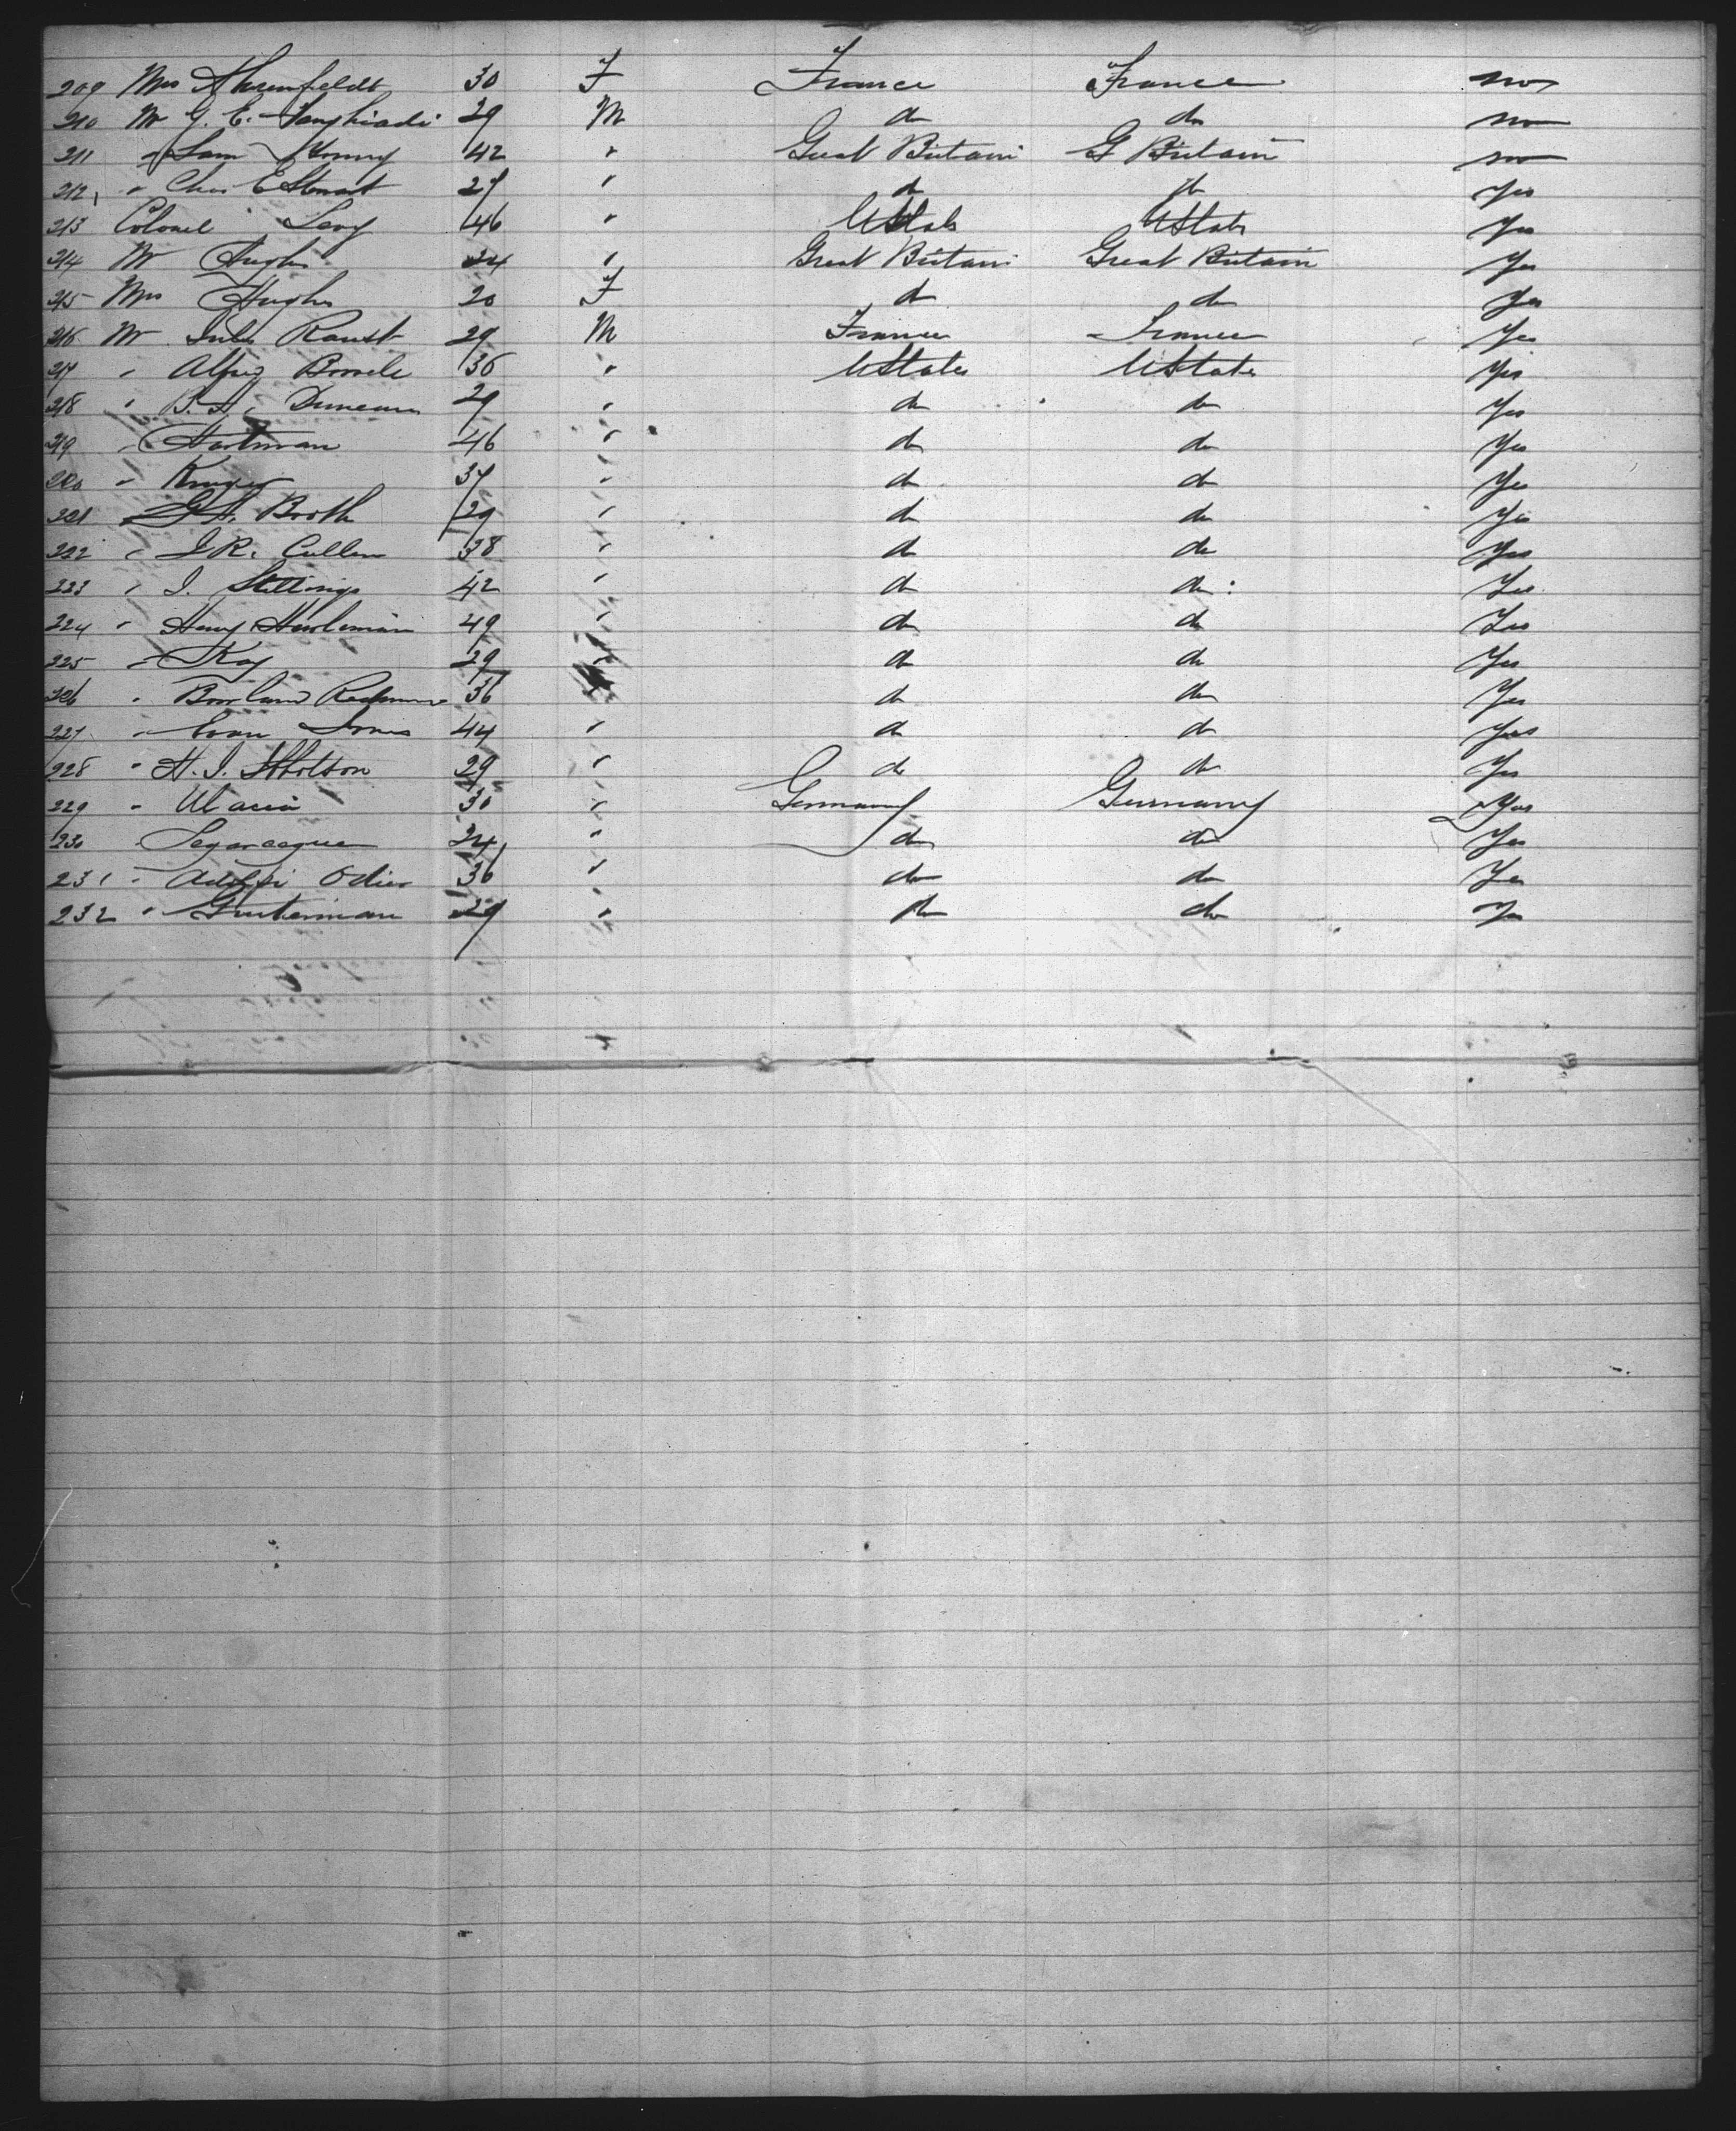 209 Mrs Ahrenfeldt 30 F France France no
210 Mr G. E. 29 M do do no
211 " Sam Young 42 " Great Britain G Britain no
212 " Chas E Stewart 27 " do do Yes
213 Colonel Levy 46 " U States U States Yes
214 Mr Hughes 24 " Great Britain Great Britain Yes
215 Mrs Hughes 20 F do do Yes
216 Mr Jules 29 M France France Yes
217 " 36 " U States U States Yes
218 " Duncan 29 " do do Yes
219 " Hartman 46 " do do Yes
220 " Kruger 37 " do do Yes
221 " G. A. Booth 29 " do do Yes
222 " J. R. Cullen 38 " do do Yes
223 " J. Stettinius 42 " do do Yes
224 " Henry 49 " do do Yes
225 " Kay 29 " do do Yes
226 " 36 " do do Yes
227 " Evan Jones 44 " do do Yes
228 " H. J. 29 " do do Yes
229 " 30 " Germany Germany Yes
230 " 24 " do do Yes
231 " Odier 36 " do do Yes
232 " Guterman 29 " do do Yes